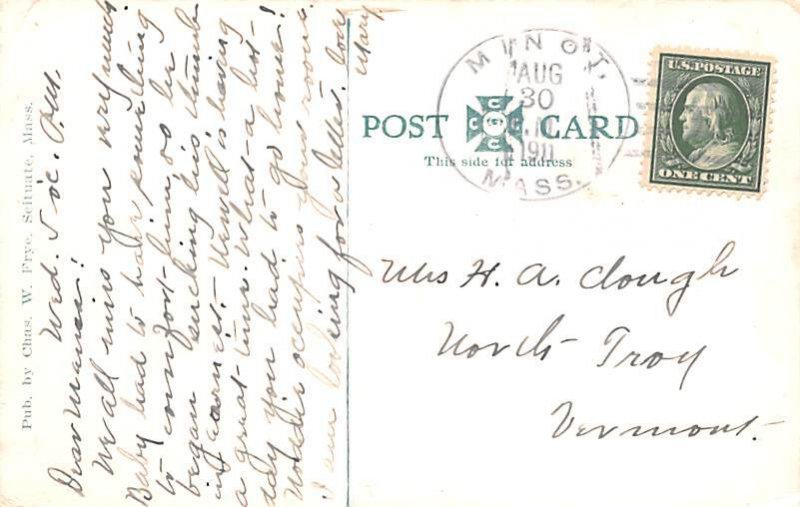 Pub. by Chas. W. Frye, Scituate, Mass.
Wed. 5 oc. P.M.
Dear
We all miss you very much.
Baby had to have something
to comfort him, so he
began sucking his thumb
in earnest. is having
a great time. What a hot
day you had to go home!
occupies your room.
I am looking for a letter. Love
Mary
POST CARD
This side for address
MINOT,
AUG
30
1911
MASS.
U.S. POSTAGE
ONE CENT
Mrs H. A. Clough
North Troy
Vermont.